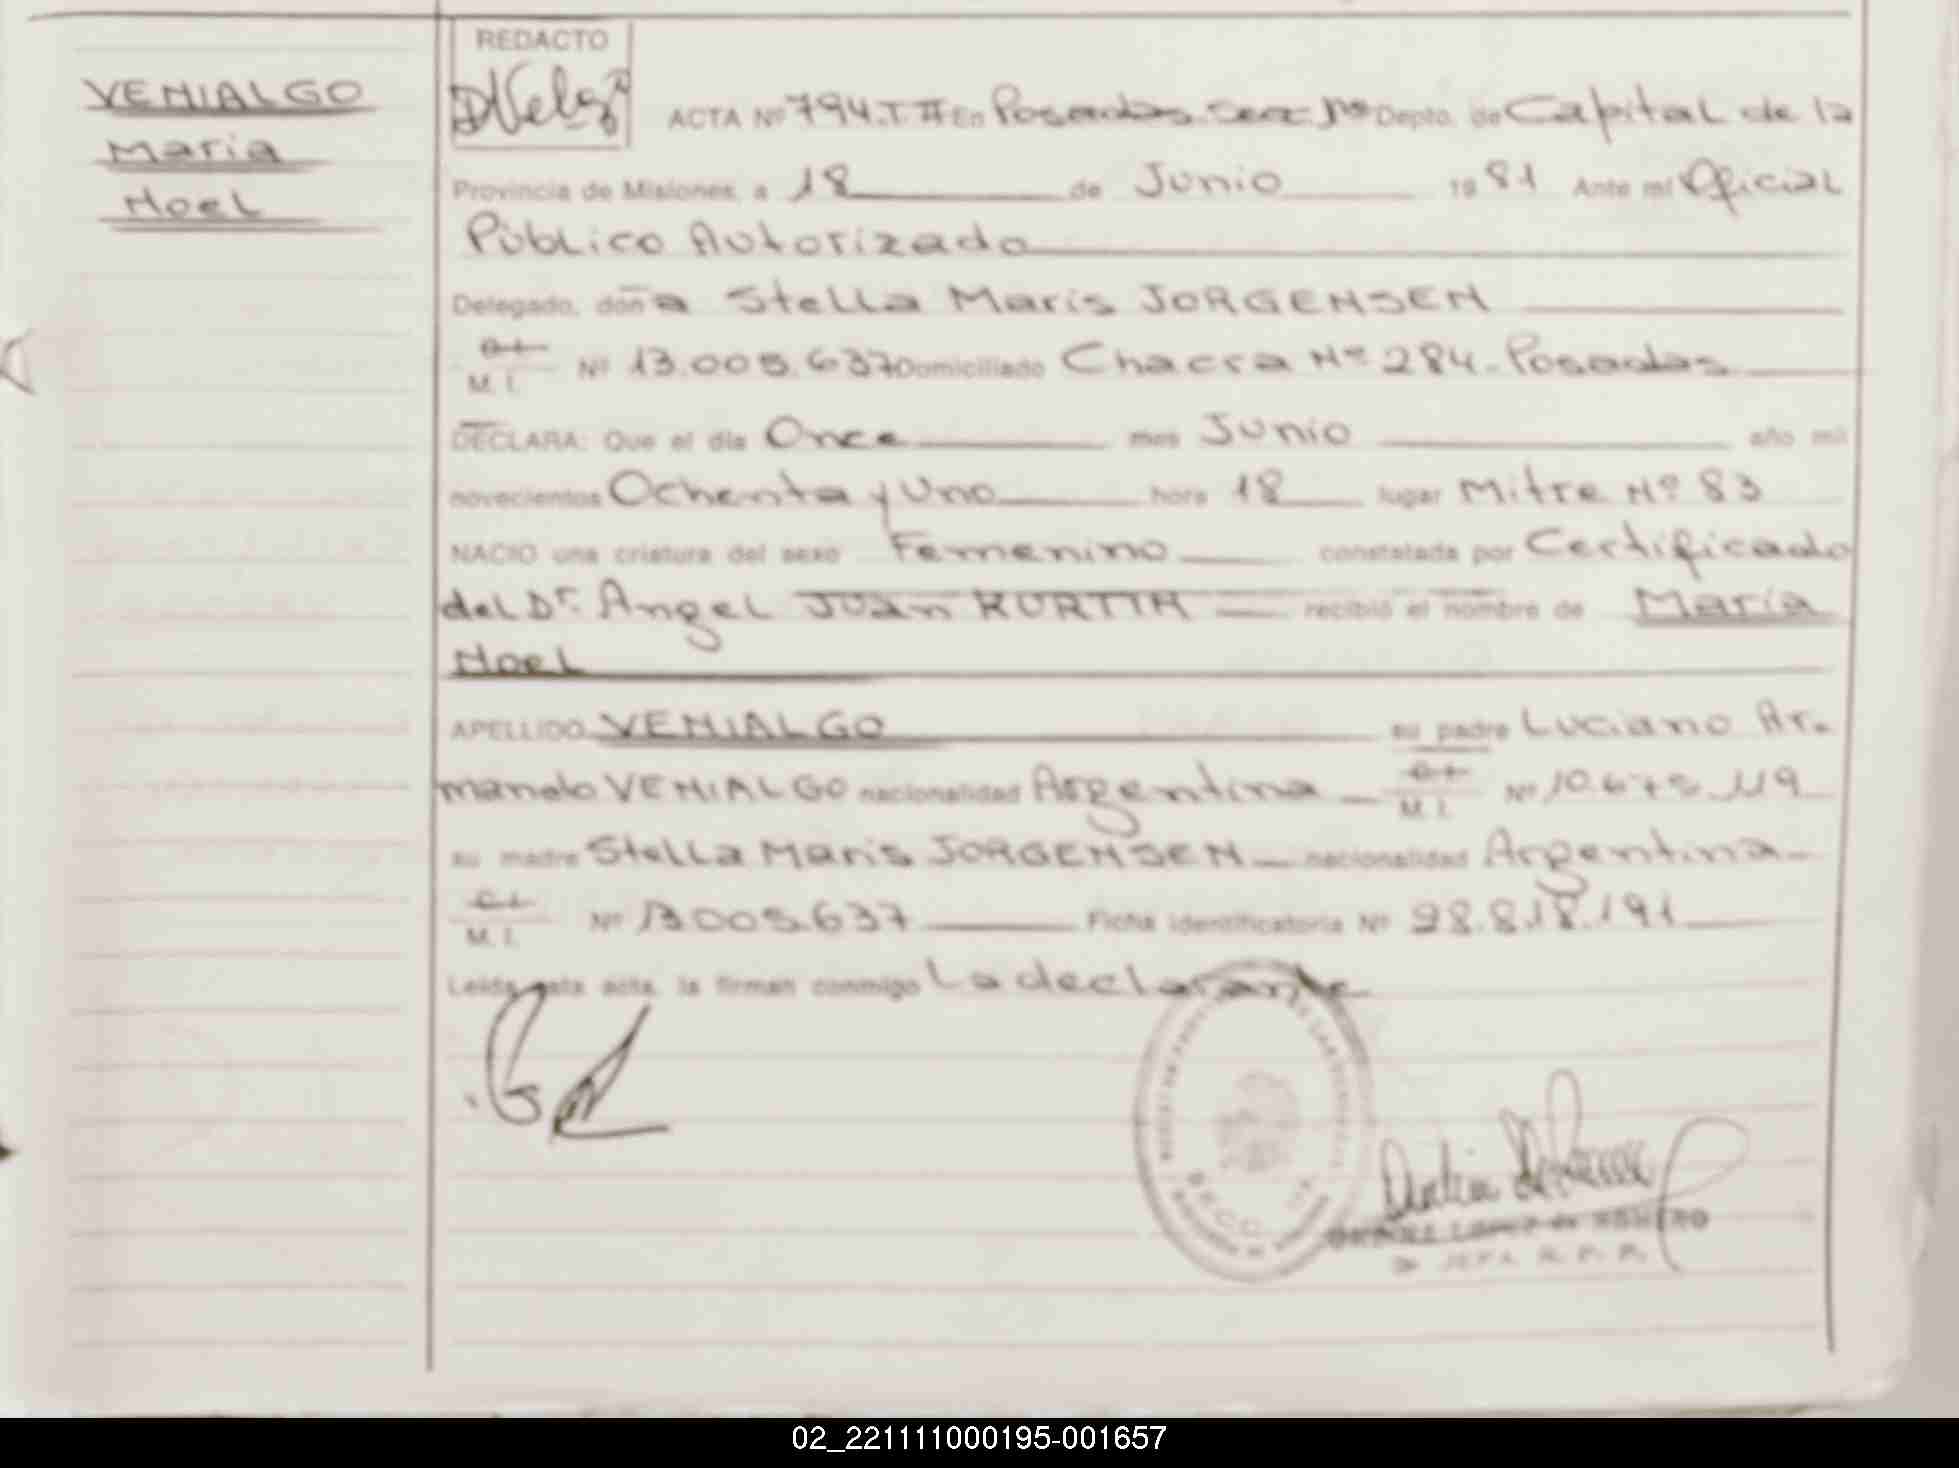 VENIALGO
Maria
Noel
REDACTO
ACTA Nº 794.T.II En Posadas. Secc. 1ª Depto. de Capital de la
Provincia de Misiones, a 18 de Junio 1981 Ante mí Oficial
Público Autorizado
Delegado, don̶a Stella Maris JORGENSEN
C.I.
M. I. Nº 13.005.637 Domiciliado Chacra Nº 284 - Posadas
DECLARA: Que el día Once mes Junio año mil
novecientos Ochenta y Uno hora 18 lugar Mitre Nº 83
NACIO una criatura del sexo Femenino constatada por Certificado
del Dr. Angel Juan KURTIN recibió el nombre de María
Noel
APELLIDO VENIALGO su padre Luciano Ar-
mando VENIALGO nacionalidad Argentina C.I. M. I. Nº 10.675.119
su madre Stella Maris JORGENSEN nacionalidad Argentina
C.I.
M. I. Nº 13.005.637 Ficha identificatoria Nº 28.818.191
Leída esta acta, la firman conmigo La declarante
LOPEZ de ROMERO
JEFA R. P. P.
02_221111000195-001657